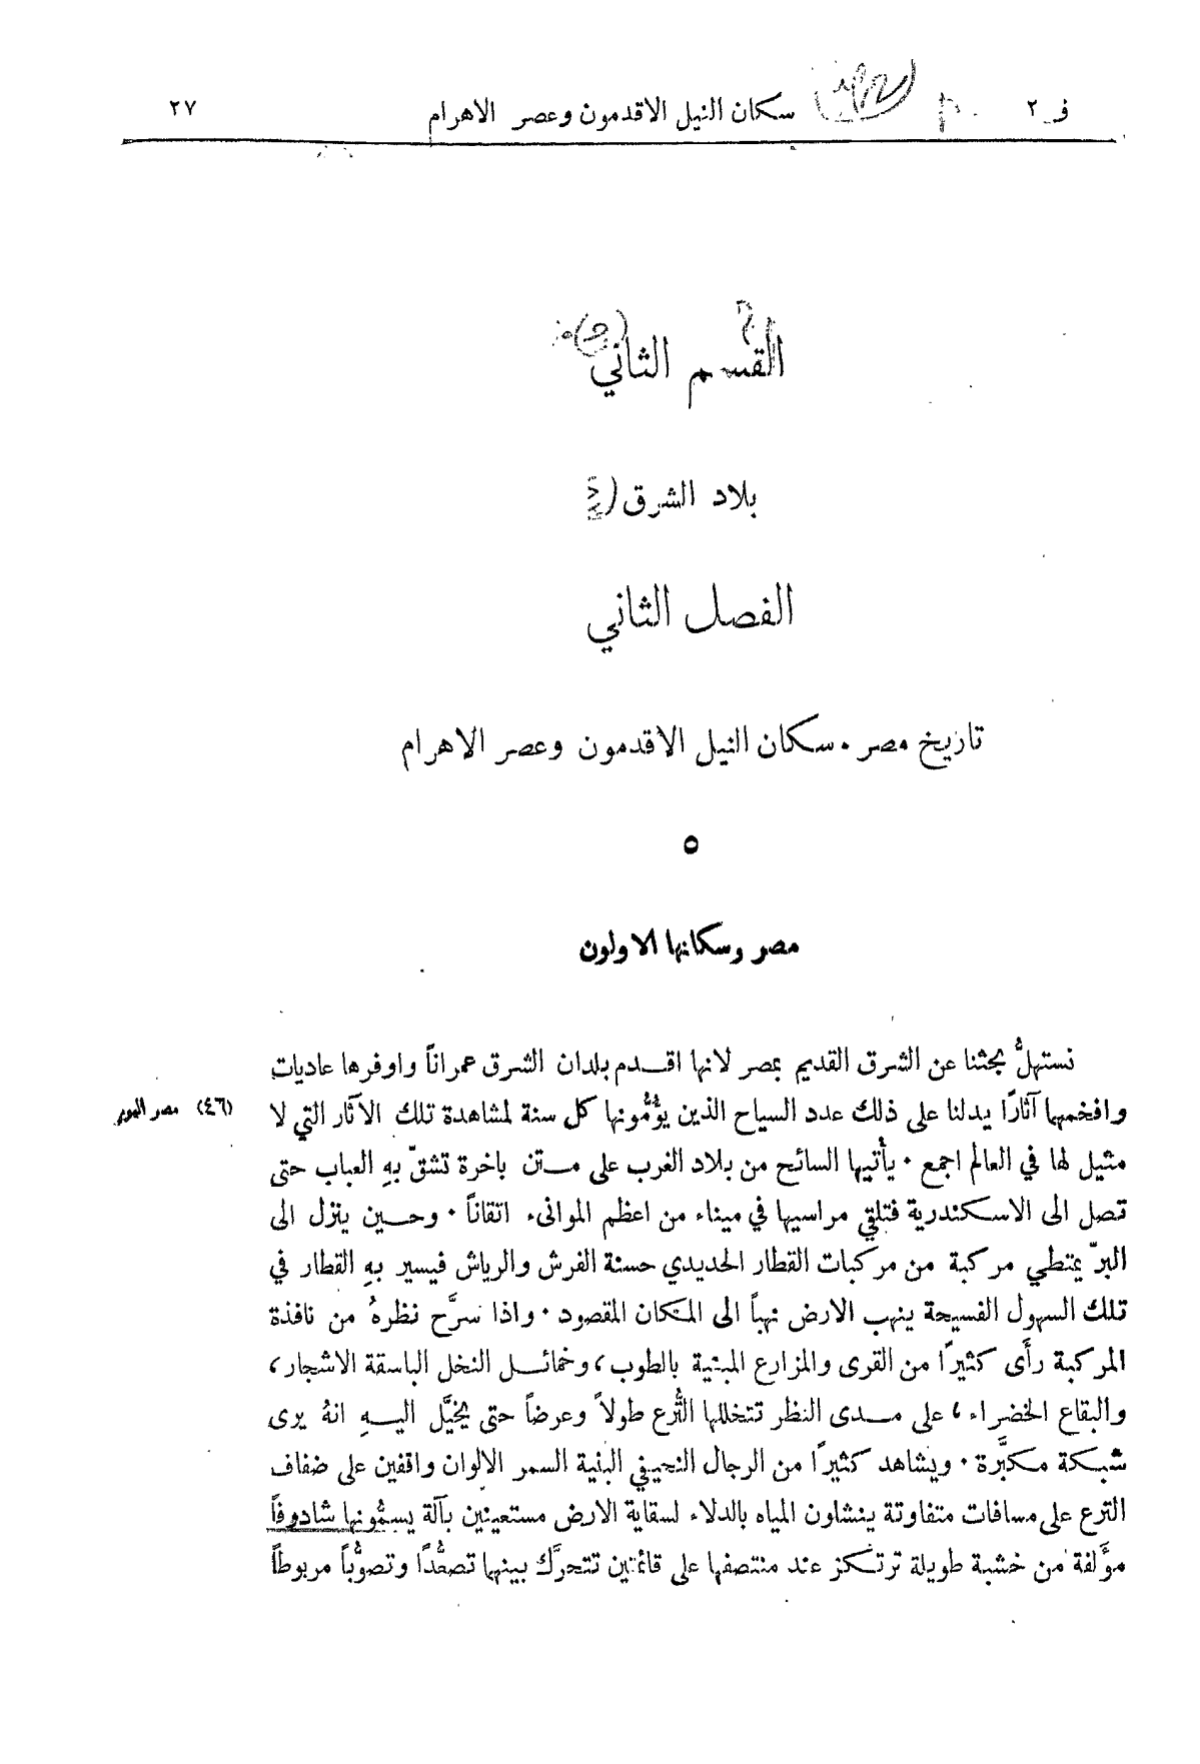 ف ٢ سكان النيل الاقدمون وعصر الاهرام ٢٧
القسم الثاني
بلاد الشرق
الفصل الثاني
تاريخ مصر . سكان النيل الاقدمون وعصر الاهرام
٥
مصر وسكانها الاولون
نستهلُّ بحثنا عن الشرق القديم بمصر لانها اقدم بلدان الشرق عمراناً واوفرها عاديات
وافخمها آثارًا يدلنا على ذلك عدد السياح الذين يؤُمُّونها كل سنة لمشاهدة تلك الآثار التي لا
(٤٦) مصر اليوم
مثيل لها في العالم اجمع . يأتيها السائح من بلاد الغرب على متن باخرة تشقّ بهِ العباب حتى
تصل الى الاسكندرية فتلقي مراسيها في ميناء من اعظم الموانىء اتقاناً . وحين ينزل الى
البرّ يمتطي مركبة من مركبات القطار الحديدي حسنة الفرش والرياش فيسير بهِ القطار في
تلك السهول الفسيحة ينهب الارض نهباً الى المكان المقصود . واذا سرَّح نظرهُ من نافذة
المركبة رأَى كثيرًا من القرى والمزارع المبنية بالطوب ، وخمائل النخل الباسقة الاشجار ،
والبقاع الخضراء ، على مدى النظر تتخللها التُّرع طولاً وعرضاً حتى يخيَّل اليهِ انهُ يرى
شبكة مكبَّرة . ويشاهد كثيرًا من الرجال النحيفي البنية السمر الالوان واقفين على ضفاف
الترع على مسافات متفاوتة ينشاون المياه بالدلاء لسقاية الارض مستعينين بآلة يسمُّونها شادوفاً
مؤَلفة من خشبة طويلة ترتكز عند منتصفها على قائمتين تتحرَّك بينها تصعُّدًا وتصوُّباً مربوطاً